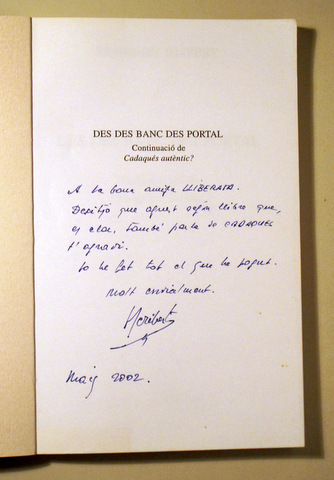 DES DES BANC DES PORTAL
Continuació de
Cadaqués autèntic?
A la bona amiga LLIBERATA.
Desitjo que aquest segón llibre que,
es clar, també parla de CADAQUES
t'agradi.
Jo he fet tot el que he pogut.
Molt cordialment.
Heribert
Maig 2002.